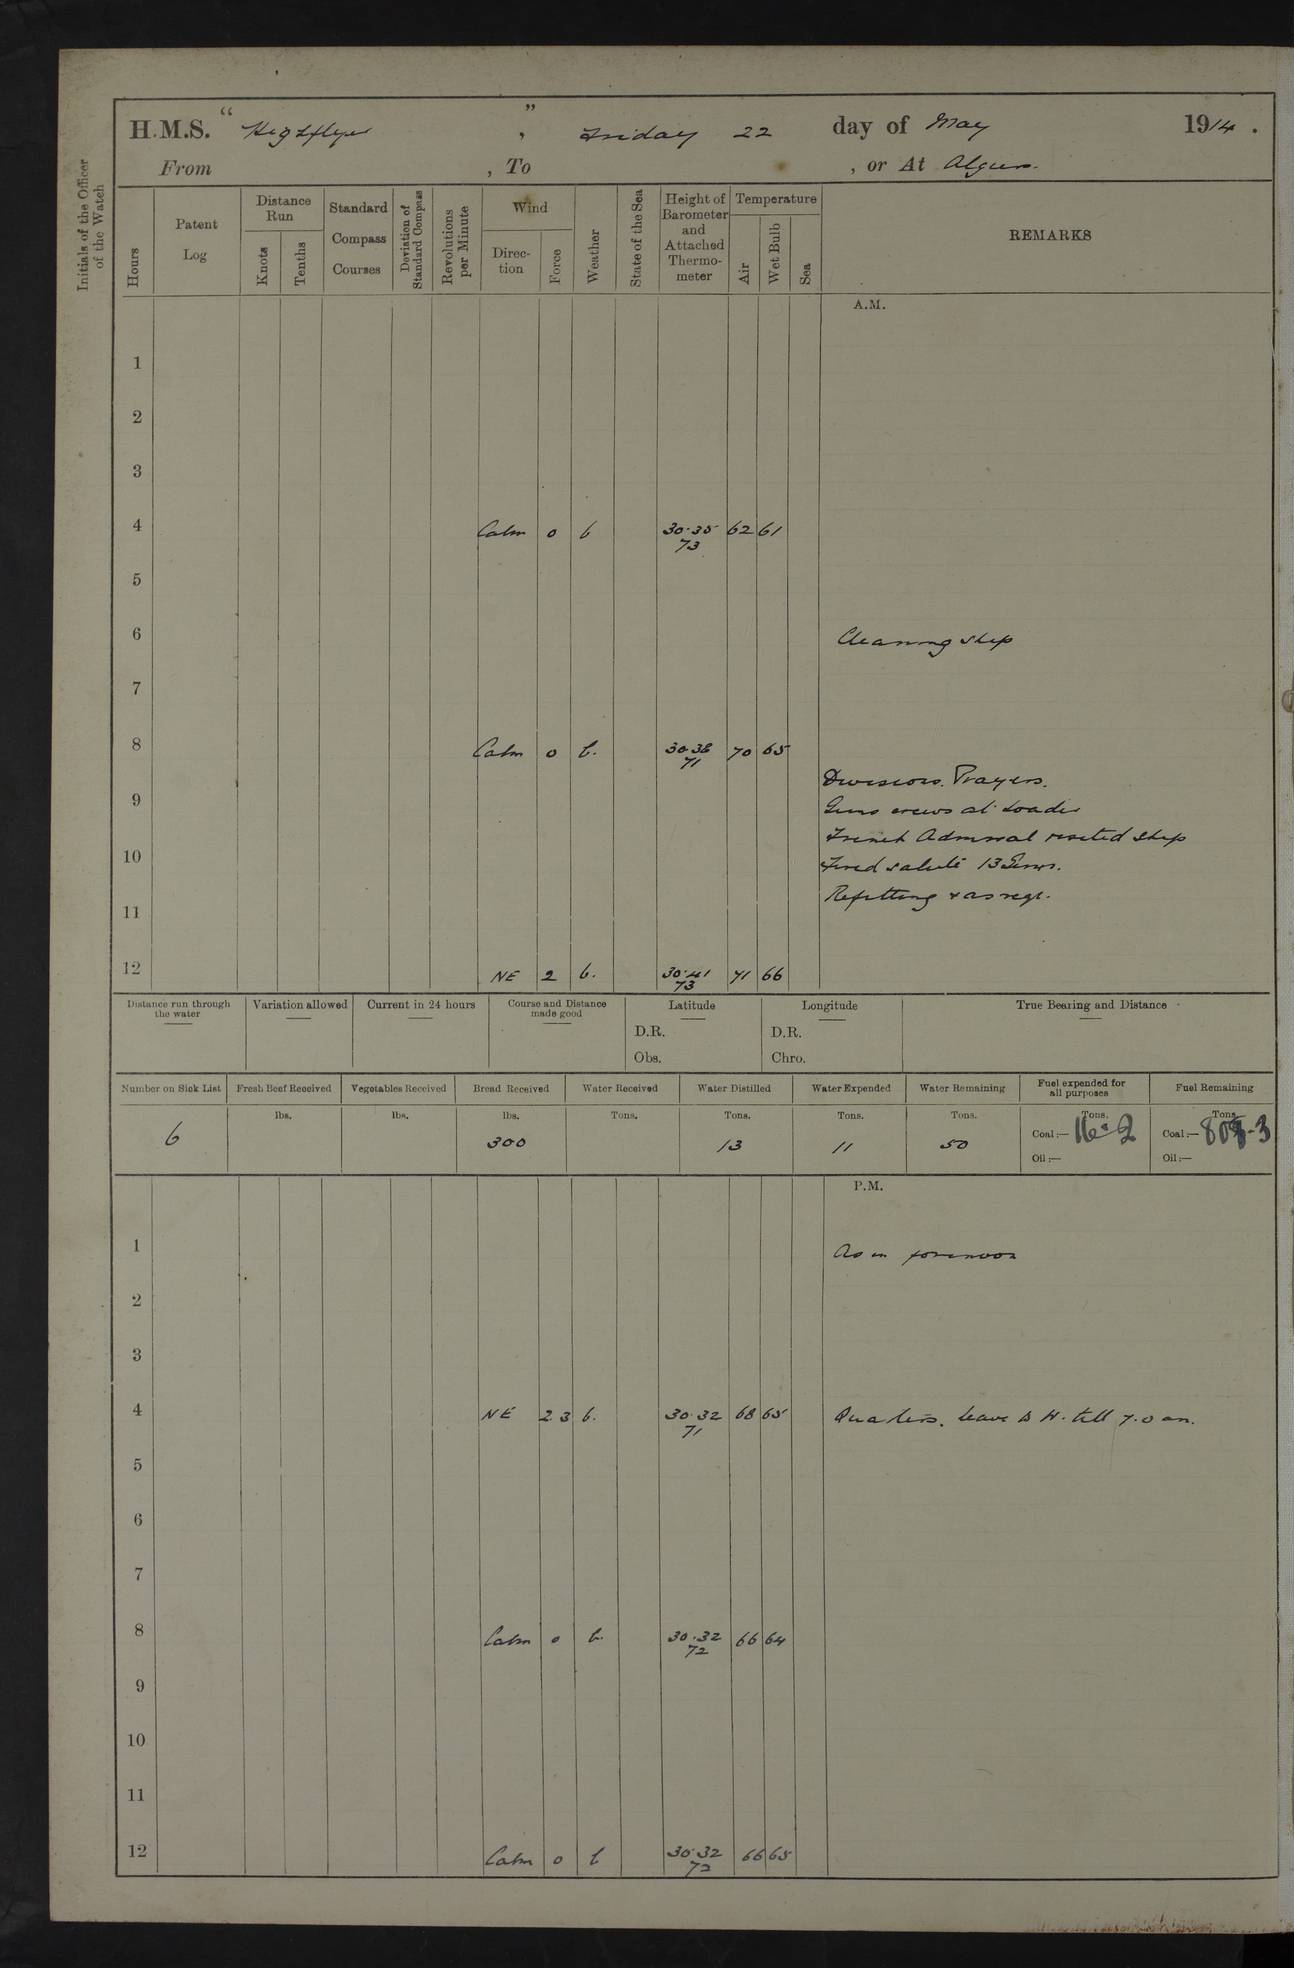 H.M.S. "Highflyer", Friday 22 day of May 1914.
From , To , or At Algiers.
Initials of the Officer of the Watch
Hours
Patent Log
Distance Run
Knots
Tenths
Standard Compass Courses
Deviation of Standard Compass
Revolutions per Minute
Wind
Direction
Force
Weather
State of the Sea
Height of Barometer and Attached Thermometer
Temperature
Air
Wet Bulb
Sea
REMARKS
A.M.
1
2
3
4 Calm 0 b 30.35 62 61
73
5
6 Cleaning ship
7
8 Calm 0 b. 30.38 70 65
71
Divisions. Prayers.
9 Guns crews at loader
French Admiral visited ship
10 Fired salute 13 Guns.
Refitting & as reqr.
11
12 NE 2 b. 30.41 71 66
73
Distance run through the water
Variation allowed
Current in 24 hours
Course and Distance made good
Latitude
D.R.
Obs.
Longitude
D.R.
Chro.
True Bearing and Distance
Number on Sick List
Fresh Beef Received
Vegetables Received
Bread Received
Water Received
Water Distilled
Water Expended
Water Remaining
Fuel expended for all purposes
Fuel Remaining
6
lbs.
lbs.
lbs.
300
Tons.
Tons.
13
Tons.
11
Tons.
50
Tons.
Coal:— 16.2
Oil:—
Tons.
Coal:—
Oil:—
P.M.
1 As in forenoon
2
3
4 NE 2 3 b. 30.32 68 65 Quarters. leave to W. till 7.0 am.
71
5
6
7
8 Calm 0 b. 30.32 66 64
72
9
10
11
12 Calm 0 b 30.32 66 65
72